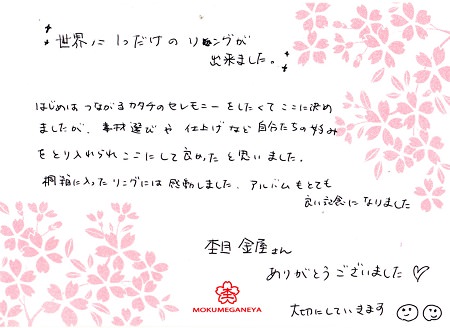 世界に1つだけのリングが
出来ました。
はじめはつながるカタチのセレモニーをしたくてここに決め
ましたが、素材選びや仕上げなど自分たちの好み
をとり入れられここにして良かったと思いました。
桐箱に入ったリングには感動しました。アルバムもとても
良い記念になりました
杢目金屋さん
ありがとうございました♡
大切にしていきます
MOKUMEGANEYA